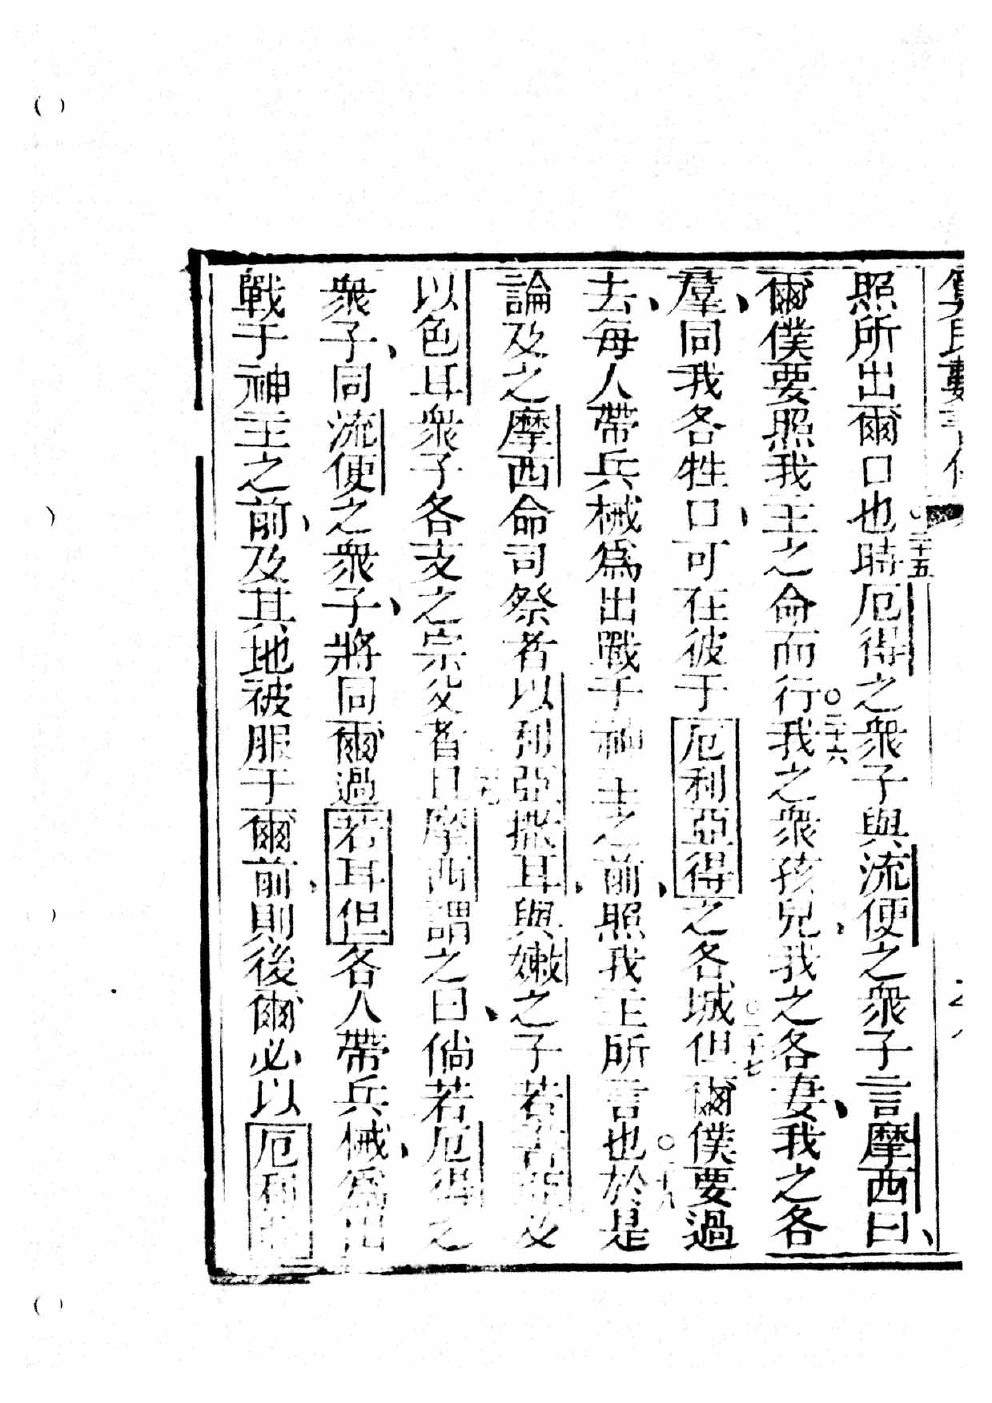 算民數書傳
照所出爾口也時○二十五厄得之衆子與流便之衆子言摩西曰、
爾僕要照我主之命而行○二十六我之衆孩兒、我之各妻、我之各
羣、同我各牲口、可在彼于厄利亞得之各城○二十七但爾僕要過
去、每人帶兵械爲出戰于神主之前、照我主所言也○二十八於是
論及之摩西命司祭者以利亞撒耳、與嫩之子若書亞及
以色耳衆子各支之宗父者○二十九且摩西謂之曰、倘若厄得之
衆子、同流便之衆子、將同爾過若耳但各人帶兵械、爲出
戰于神主之前、及其地被服于爾前、則後爾必以厄利亞